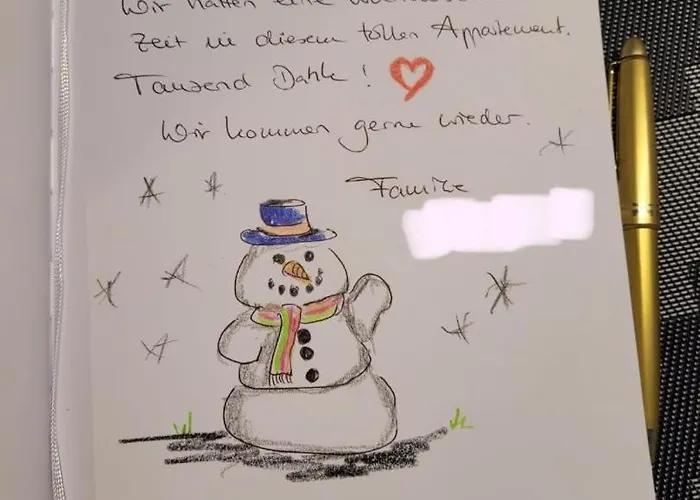 Wir hatten eine
Zeit in diesem tollen Appartement.
Tausend Dank!
Wir kommen gerne wieder.
Familie